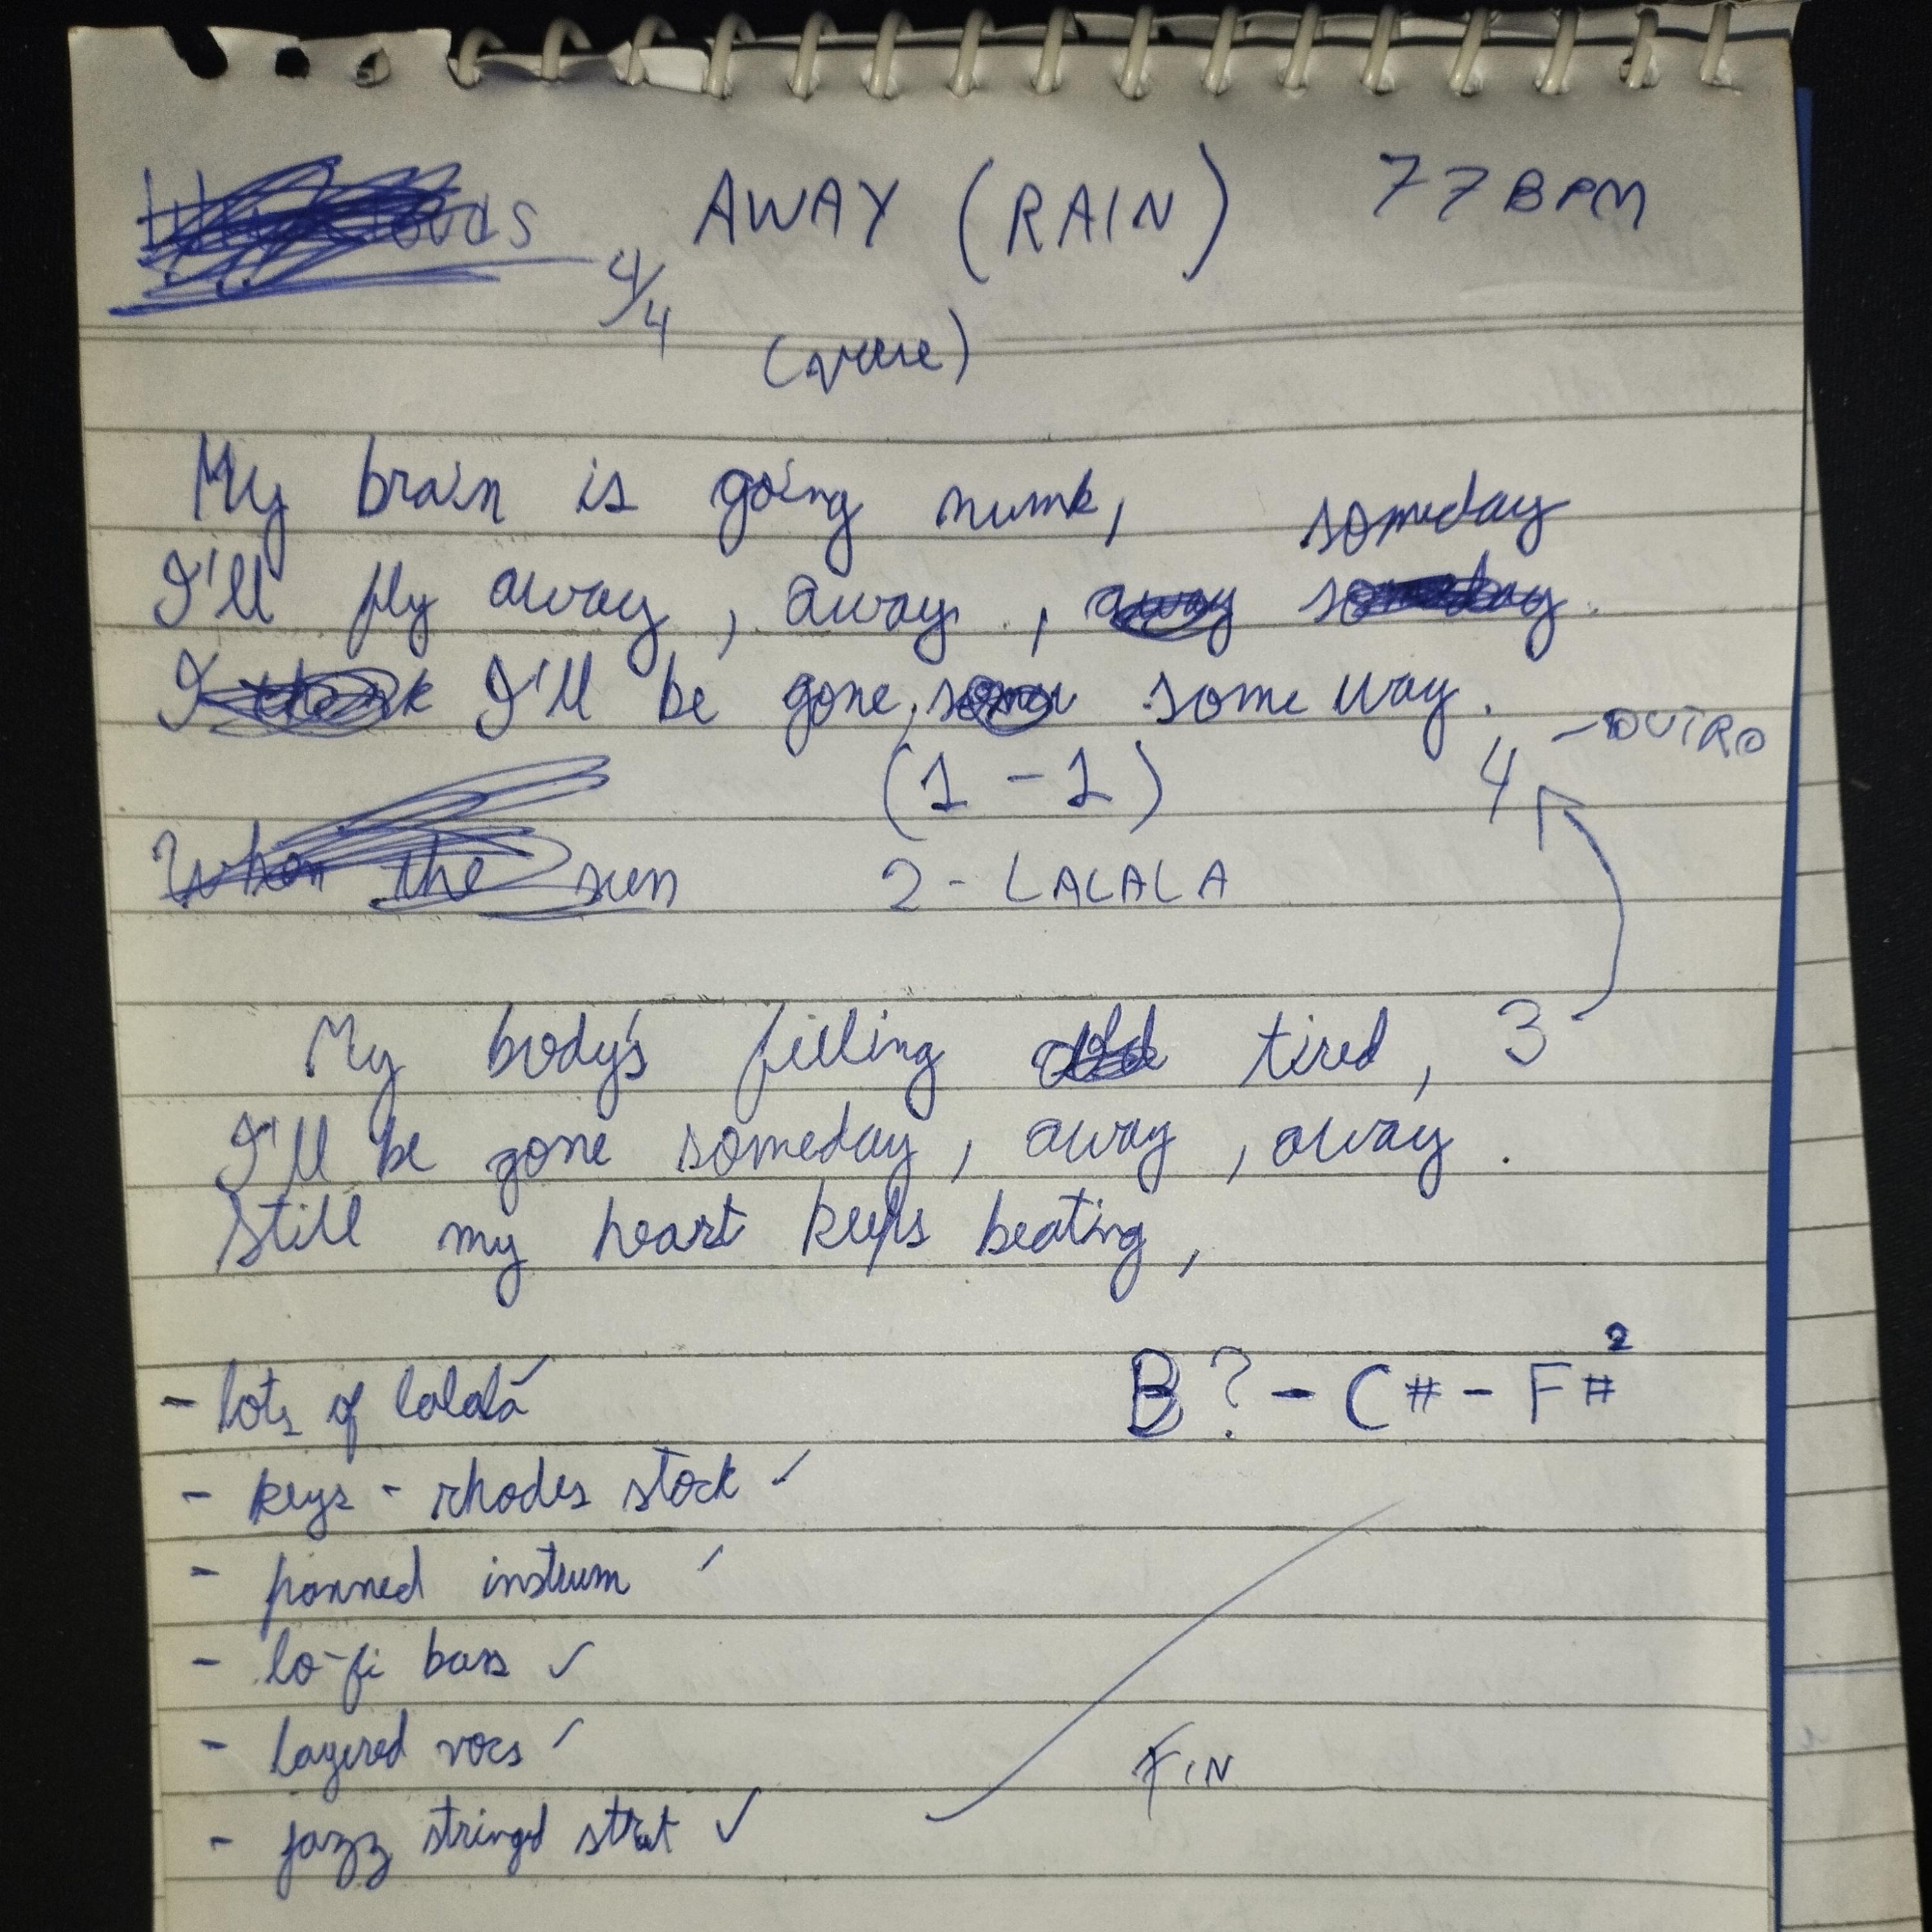 AWAY (RAIN) 77 BPM
4/4
(verse)
My brain is going numb, someday
I'll fly away, away, away someday.
I think I'll be gone, some way.
(1 - 1) 4 - OUTRO
When the sun 2 - LALALA
My body's filling old tired, 3
I'll be gone someday, away, away.
Still my heart keeps beating,
- lots of lalalá
B? - C# - F#²
- keys - rhodes stock ✓
- panned instrum ✓
- lo-fi bass ✓
- layered vocs ✓
FIN
- jazz stringed strat ✓